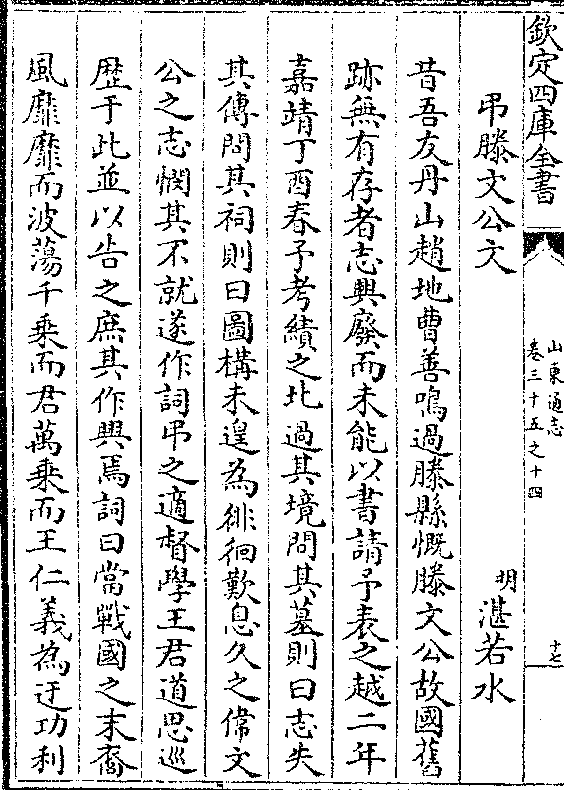 欽定四庫全書
山東通志
卷三十五之十四
十七
弔滕文公文
明
湛若水
昔吾友丹山趙地曹善鳴過滕縣慨滕文公故國舊
跡無有存者志興廢而未能以書請予表之越二年
嘉靖丁酉春予考績之北過其境問其墓則曰志失
其傳問其祠則曰圖構未遑為徘徊歎息久之偉文
公之志憫其不就遂作詞弔之適督學王君道思巡
歴于此並以告之庶其作興焉詞曰當戰國之末裔
風靡靡而波蕩千乗而君萬乗而王仁義為迂功利